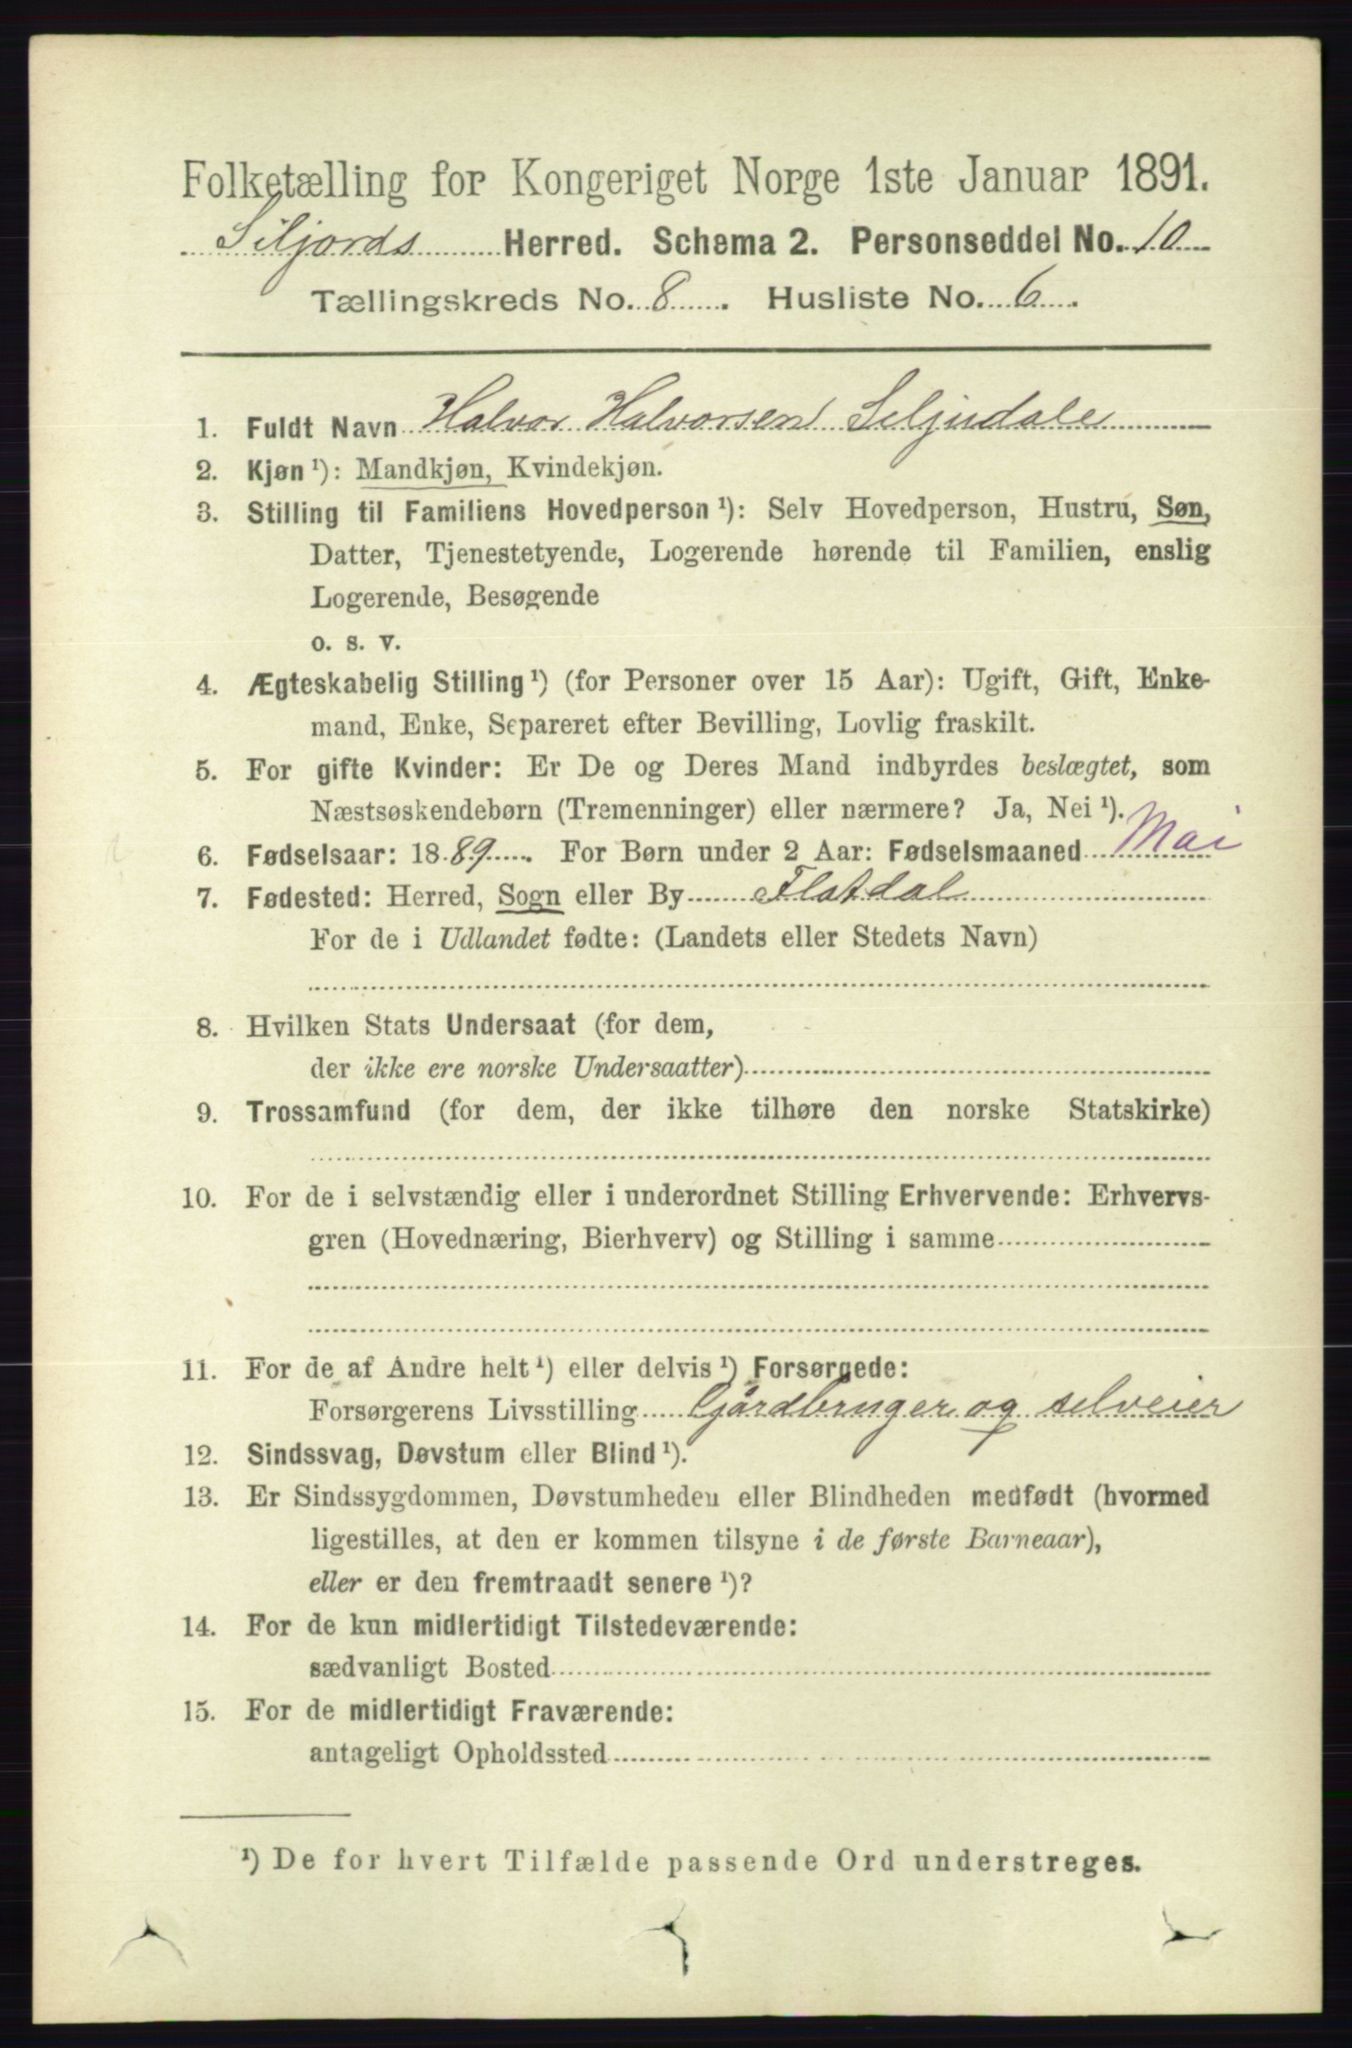 Folketælling for Kongeriget Norge 1ste Januar 1891.
Siljords Herred. Schema 2. Personseddel No. 10
Tællingskreds No. 8. Husliste No. 6.
1. Fuldt Navn Halvor Halvorsen Seljudale
2. Kjøn ¹): Mandkjøn, Kvindekjøn.
3. Stilling til Familiens Hovedperson ¹): Selv Hovedperson, Hustru, Søn,
Datter, Tjenestetyende, Logerende hørende til Familien, enslig
Logerende, Besøgende
o. s. v.
4. Ægteskabelig Stilling ¹) (for Personer over 15 Aar): Ugift, Gift, Enke-
mand, Enke, Separeret efter Bevilling, Lovlig fraskilt.
5. For gifte Kvinder: Er De og Deres Mand indbyrdes beslægtet, som
Næstsøskendebørn (Tremenninger) eller nærmere? Ja, Nei ¹).
6. Fødselsaar: 1889. For Børn under 2 Aar: Fødselsmaaned Mai
7. Fødested: Herred, Sogn eller By Flatdal
For de i Udlandet fødte: (Landets eller Stedets Navn)
8. Hvilken Stats Undersaat (for dem,
der ikke ere norske Undersaatter)
9. Trossamfund (for dem, der ikke tilhøre den norske Statskirke)
10. For de i selvstændig eller i underordnet Stilling Erhvervende: Erhvervs-
gren (Hovednæring, Bierhverv) og Stilling i samme
11. For de af Andre helt ¹) eller delvis ¹) Forsørgede:
Forsørgerens Livsstilling Gårdbruger og selveier
12. Sindssvag, Døvstum eller Blind ¹).
13. Er Sindssygdommen, Døvstumheden eller Blindheden medfødt (hvormed
ligestilles, at den er kommen tilsyne i de første Barneaar),
eller er den fremtraadt senere ¹)?
14. For de kun midlertidigt Tilstedeværende:
sædvanligt Bosted
15. For de midlertidigt Fraværende:
antageligt Opholdssted
¹) De for hvert Tilfælde passende Ord understreges.